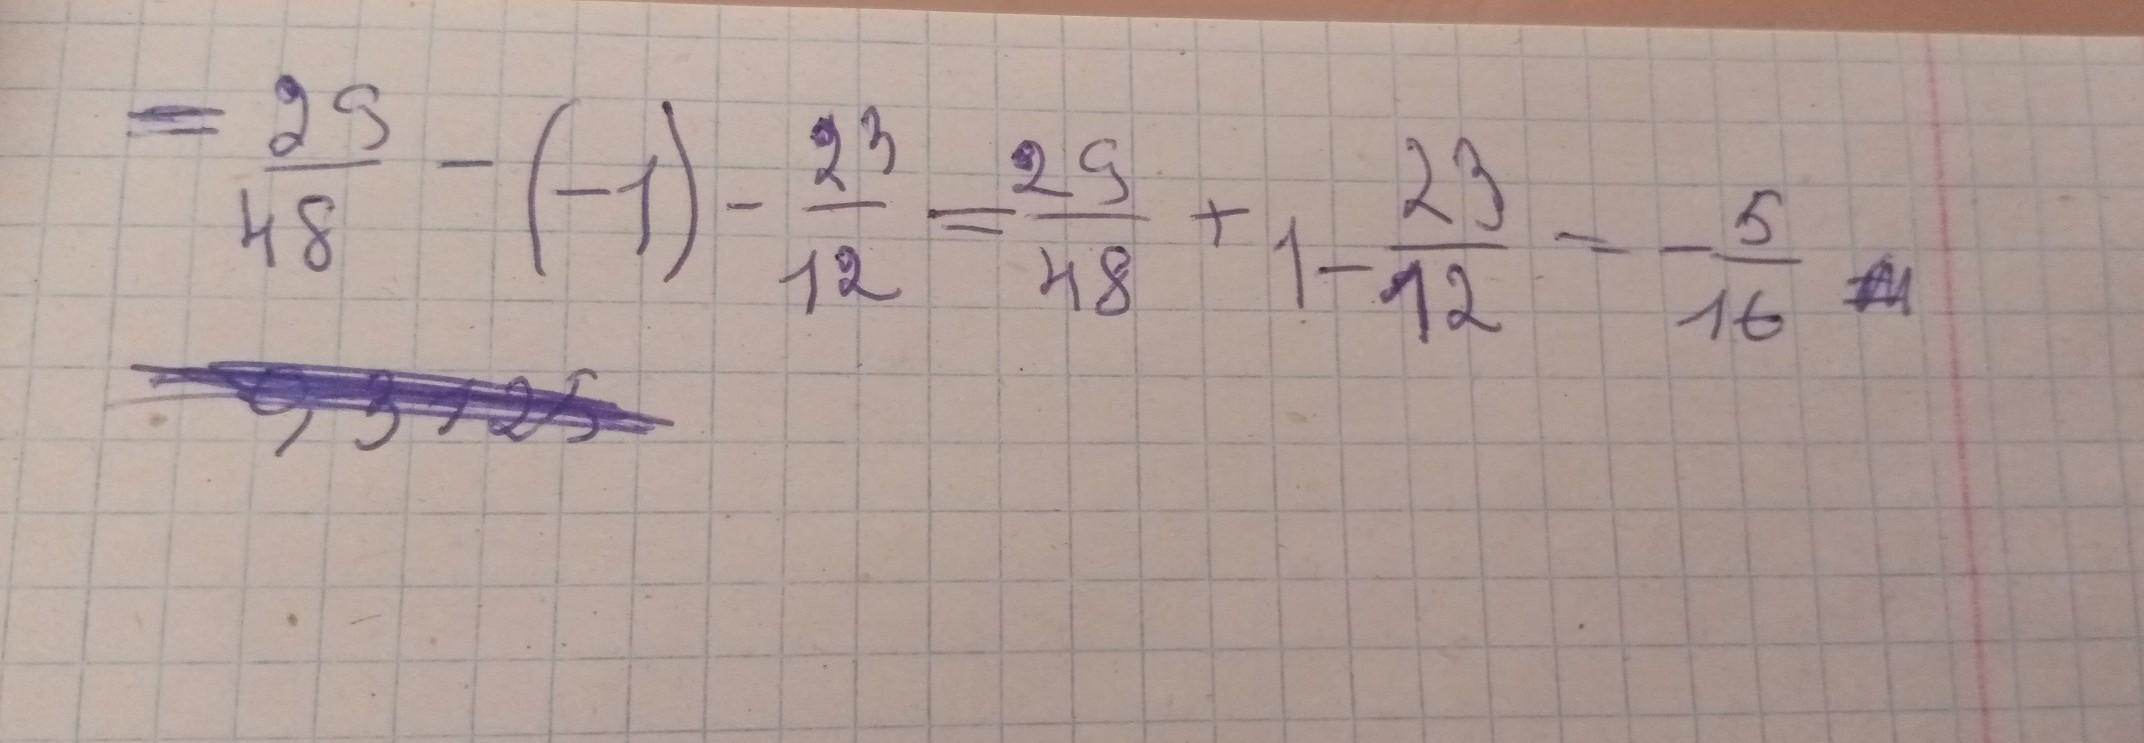 = 29/48 - (-1) - 23/12 = 29/48 + 1 - 23/12 = - 5/16
0,3125